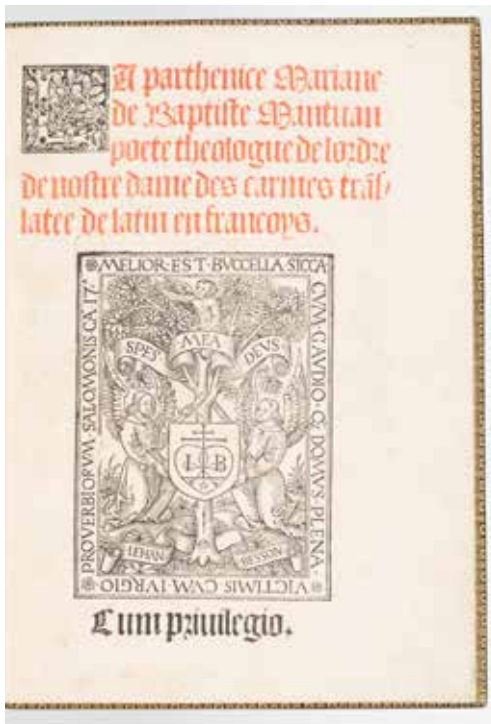 La parthenice Mariane
de Baptiste Mantuan
poete theologue de lordre
de nostre dame des carmes trāſ/
latee de latin en francoys.
MELIOR·EST·BVCCELLA·SICCA
CVM·GAVDIO·Q̄·DOMVS·PLENA·
VICTIMIS CVM IVRGIO
PROVERBIORVM·SALOMONIS·CA·17ᵃ
SPES MEA DEVS
I B
IEHAN BESSON
Cum priuilegio.